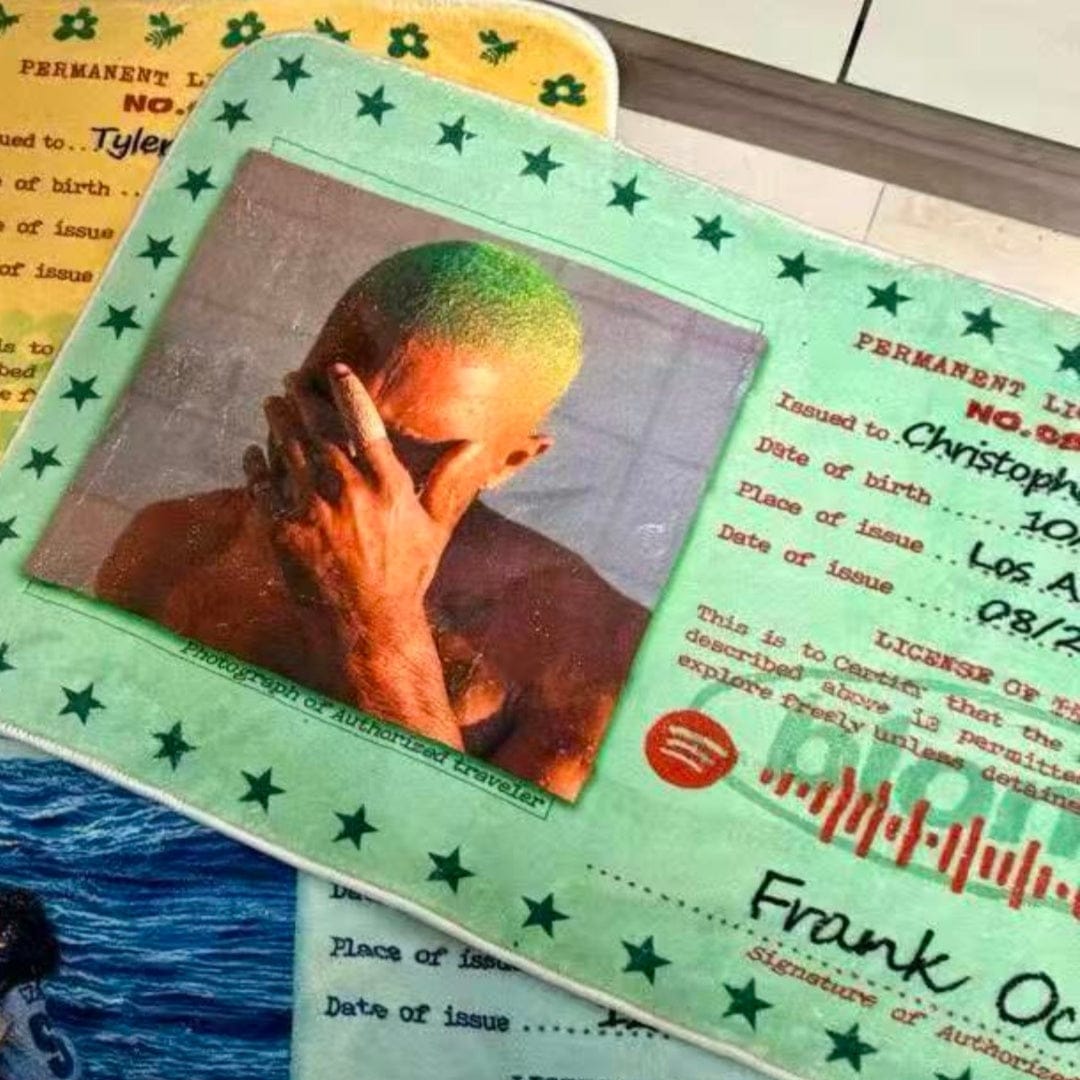 PERMANENT
NO.
ued to..Tyler
of birth ..
of issue
of issue
is to
bed
Photograph of Authorized traveler
PERMANENT
NO.
Issued to.Christoph
Date of birth ......10
Place of issue ..Los A
Date of issue .....08/2
LICENSE OF
This is to Certify that the
described above is permitted
explore freely unless detaine
Frank Oc
Signature of Authorized
Place of issu
Date of issue